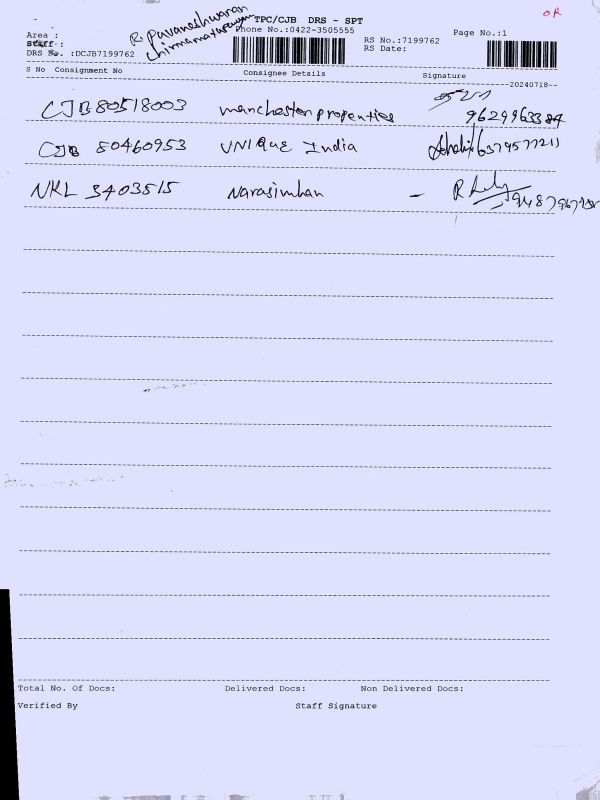 OR
R. Pavaneshwaran
TPC/CJB DRS - SPT
Phone No.:0422-3505555
Page No.:1
Area :
Staff :
RS No.:7199762
DRS No. :DCJB7199762
RS Date:
S No Consignment No Consignee Details Signature
--20240718--
CJB 80518003 manchester properties
9629963384
CJB 80460953 UNIQUE India 6374577211
NKL 3403515 Narasimhan -
Total No. Of Docs: Delivered Docs: Non Delivered Docs:
Verified By Staff Signature